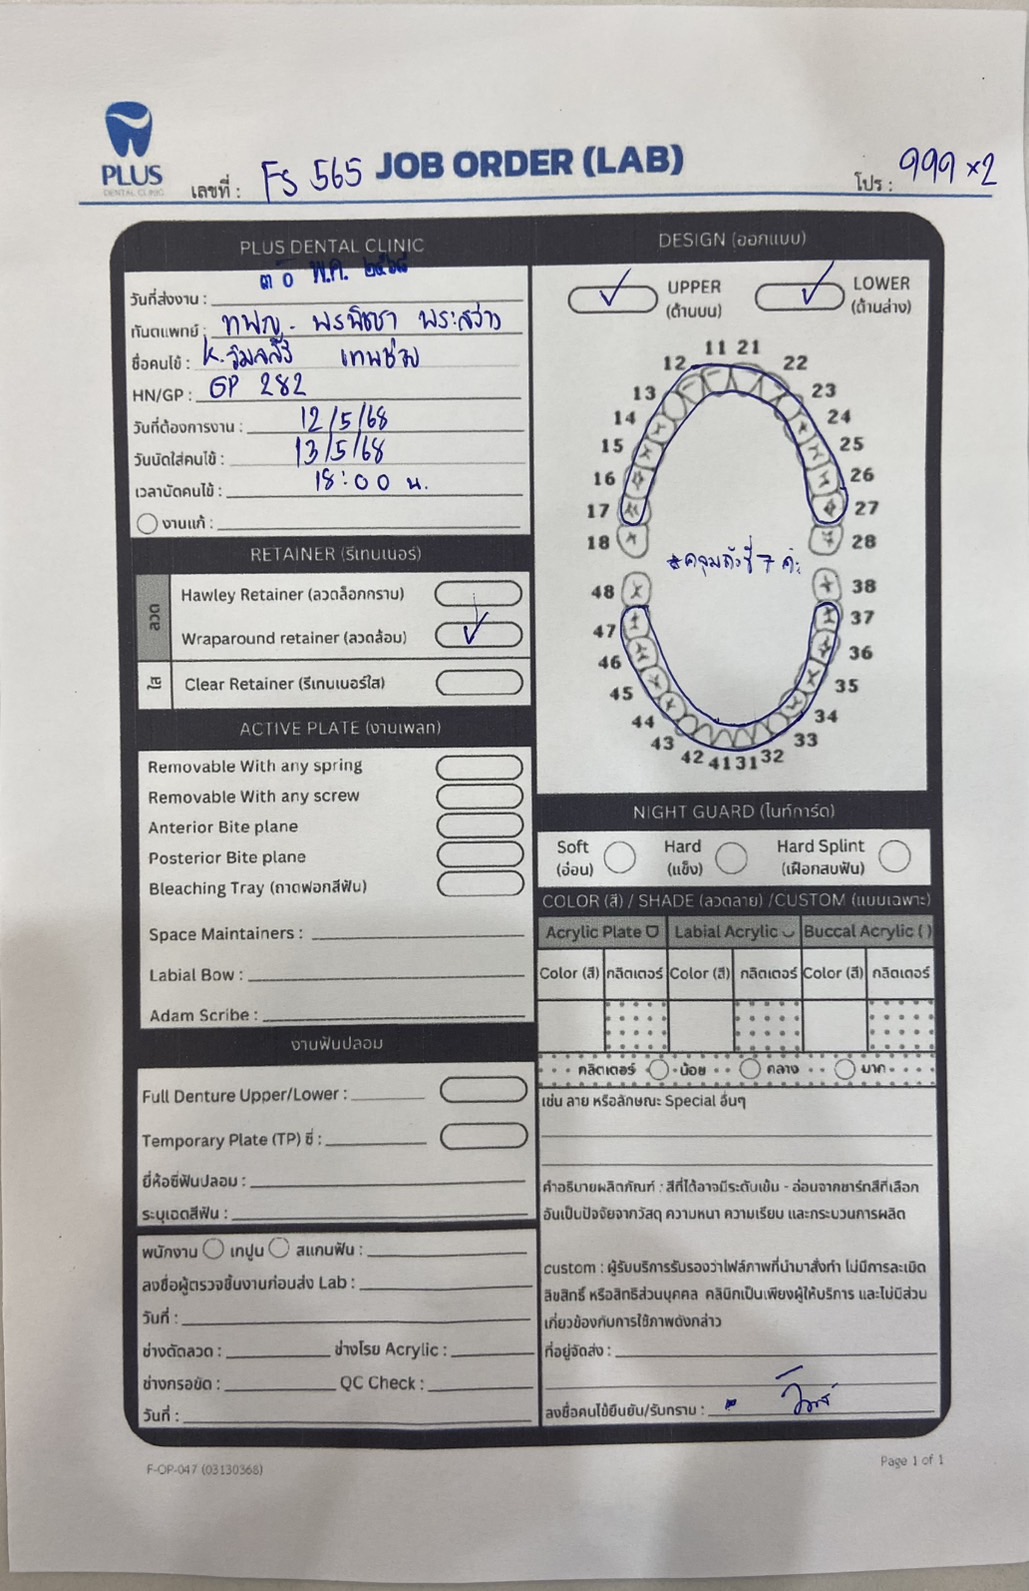 PLUS
DENTAL CLINIC
เลขที่ : FS 565 JOB ORDER (LAB) โปร : 999 ×2
PLUS DENTAL CLINIC
วันที่ส่งงาน : ๓๐ พ.ค. ๒๕๖๘
ทันตแพทย์ : ทพญ. พรพิชชา พระสว่าง
ชื่อคนไข้ : K. วิมลสิริ เทพช่วย
HN/GP : GP 282
วันที่ต้องการงาน : 12/5/68
วันนัดใส่คนไข้ : 13/5/68
เวลานัดคนไข้ : 18:00 น.
งานแก้ :
RETAINER (รีเทนเนอร์)
ลวด
Hawley Retainer (ลวดล็อกกราม)
Wraparound retainer (ลวดล้อม)
ใส
Clear Retainer (รีเทนเนอร์ใส)
ACTIVE PLATE (งานเพลท)
Removable With any spring
Removable With any screw
Anterior Bite plane
Posterior Bite plane
Bleaching Tray (ถาดฟอกสีฟัน)
Space Maintainers :
Labial Bow :
Adam Scribe :
งานฟันปลอม
Full Denture Upper/Lower :
Temporary Plate (TP) ซี่ :
ยี่ห้อซี่ฟันปลอม :
ระบุเฉดสีฟัน :
พนักงาน เทปูน สแกนฟัน :
ลงชื่อผู้ตรวจชิ้นงานก่อนส่ง Lab :
วันที่ :
ช่างดัดลวด : ช่างโรย Acrylic :
ช่างกรอขัด : QC Check :
วันที่ :
DESIGN (ออกแบบ)
UPPER LOWER
(ด้านบน) (ด้านล่าง)
11 21
12 22
13 23
14 24
15 25
16 26
17 27
18 28
*คลุมถึงซี่ 7 ค่ะ
48 38
47 37
46 36
45 35
44 34
43 33
42 41 31 32
NIGHT GUARD (ไนท์การ์ด)
Soft Hard Hard Splint
(อ่อน) (แข็ง) (เฝือกสบฟัน)
COLOR (สี) / SHADE (ลวดลาย) /CUSTOM (แบบเฉพาะ)
Acrylic Plate Labial Acrylic Buccal Acrylic ( )
Color (สี) กลิตเตอร์ Color (สี) กลิตเตอร์ Color (สี) กลิตเตอร์
กลิตเตอร์ น้อย กลาง มาก
เช่น ลาย หรือลักษณะ Special อื่นๆ
คำอธิบายผลิตภัณฑ์ : สีที่ได้อาจมีระดับเข้ม - อ่อนจากชาร์ทสีที่เลือก
อันเป็นปัจจัยจากวัสดุ ความหนา ความเรียบ และกระบวนการผลิต
custom : ผู้รับบริการรับรองว่าไฟล์ภาพที่นำมาสั่งทำ ไม่มีการละเมิด
ลิขสิทธิ์ หรือสิทธิส่วนบุคคล คลินิกเป็นเพียงผู้ให้บริการ และไม่มีส่วน
เกี่ยวข้องกับการใช้ภาพดังกล่าว
ที่อยู่จัดส่ง :
ลงชื่อคนไข้ยืนยัน/รับทราบ :
F-OP-047 (03130368)
Page 1 of 1